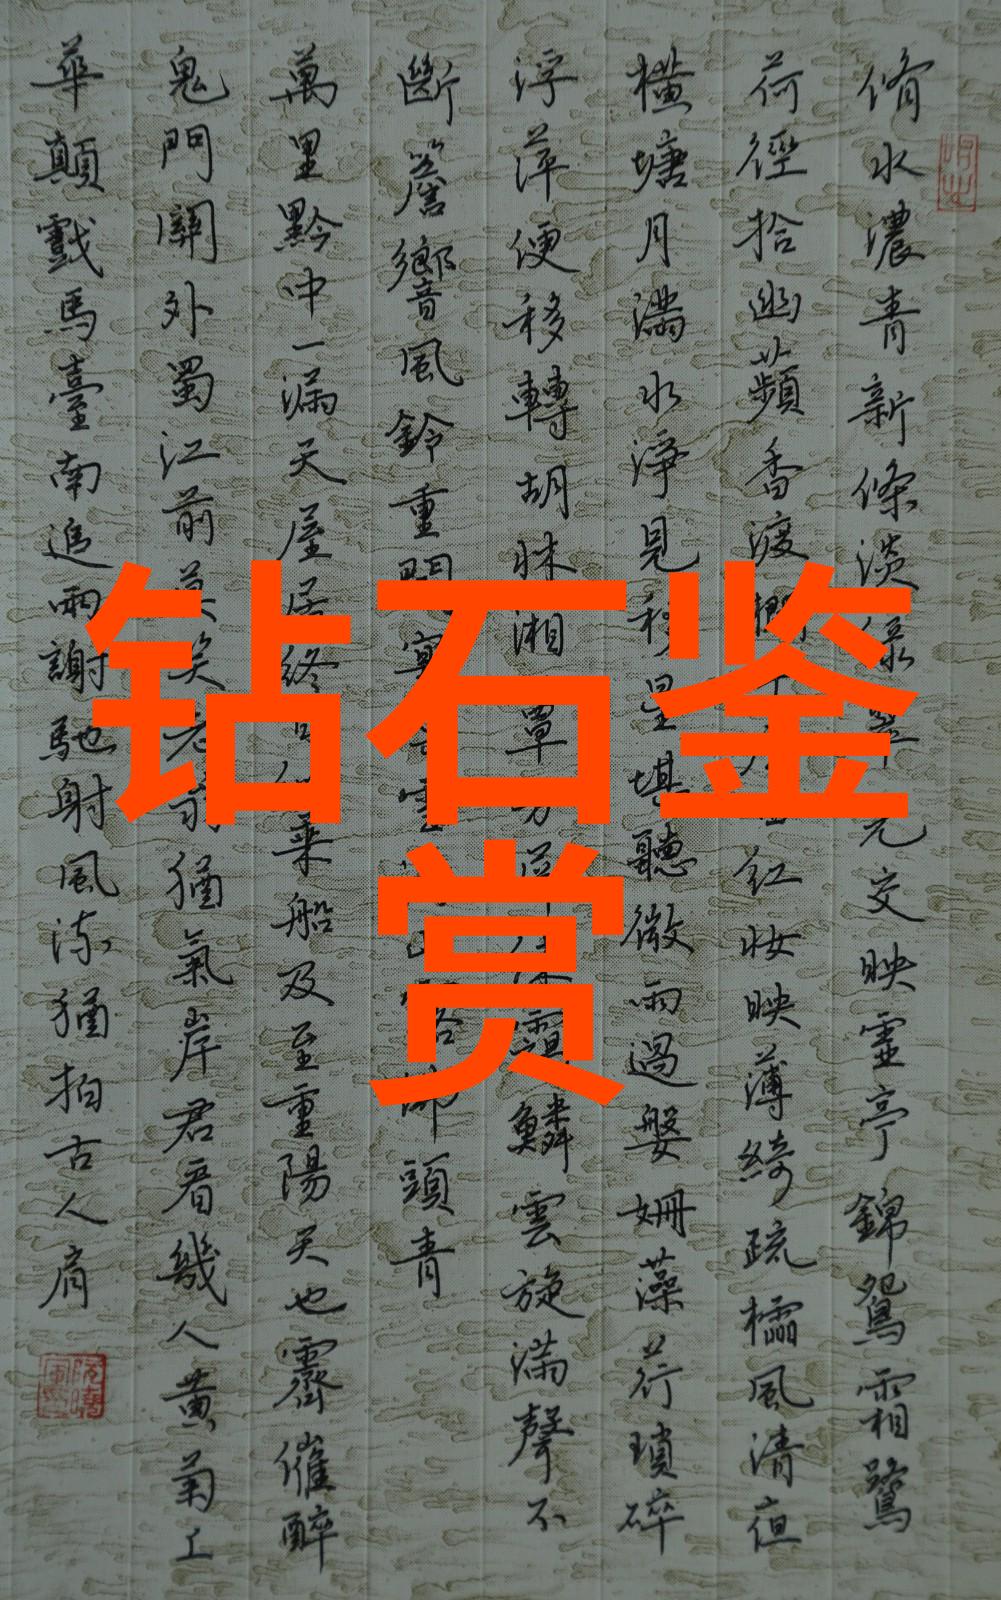 脩水濃青新條淡綠翠光交映虛亭錦鴛霜鷺
荷徑拾幽蘋香渡紅妝映薄綺疏櫺風清
橫塘月滿水淨見移星堪聽微雨過媻姍藻荇瑣碎
浮萍便移轉胡牀湘簟方屏鱗雲旋滿聲不
斷簷響風鈴重開宴頭青
萬里黔中一漏天屋居終乘船及至重陽天也霽催醉
鬼門關外蜀江前莫笑老翁猶氣岸君看幾人黃菊上
華顛戲馬臺南追兩謝馳射風流猶拍古人肩
钻石鉴
赏